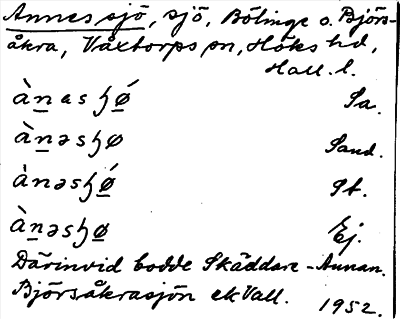 Annes sjö, sjö, Bölinge o. Björs-
åkra, Våxtorps sn, Höks hd,
Hall. l.
ànasɧǿ Sa.
ànəsɧø Sand.
ànəsɧǿ St.
ànəsɧø Ej.
Därinvid bodde Skäddare-Annan.
Björsåkrasjön ek Vall. 1952.